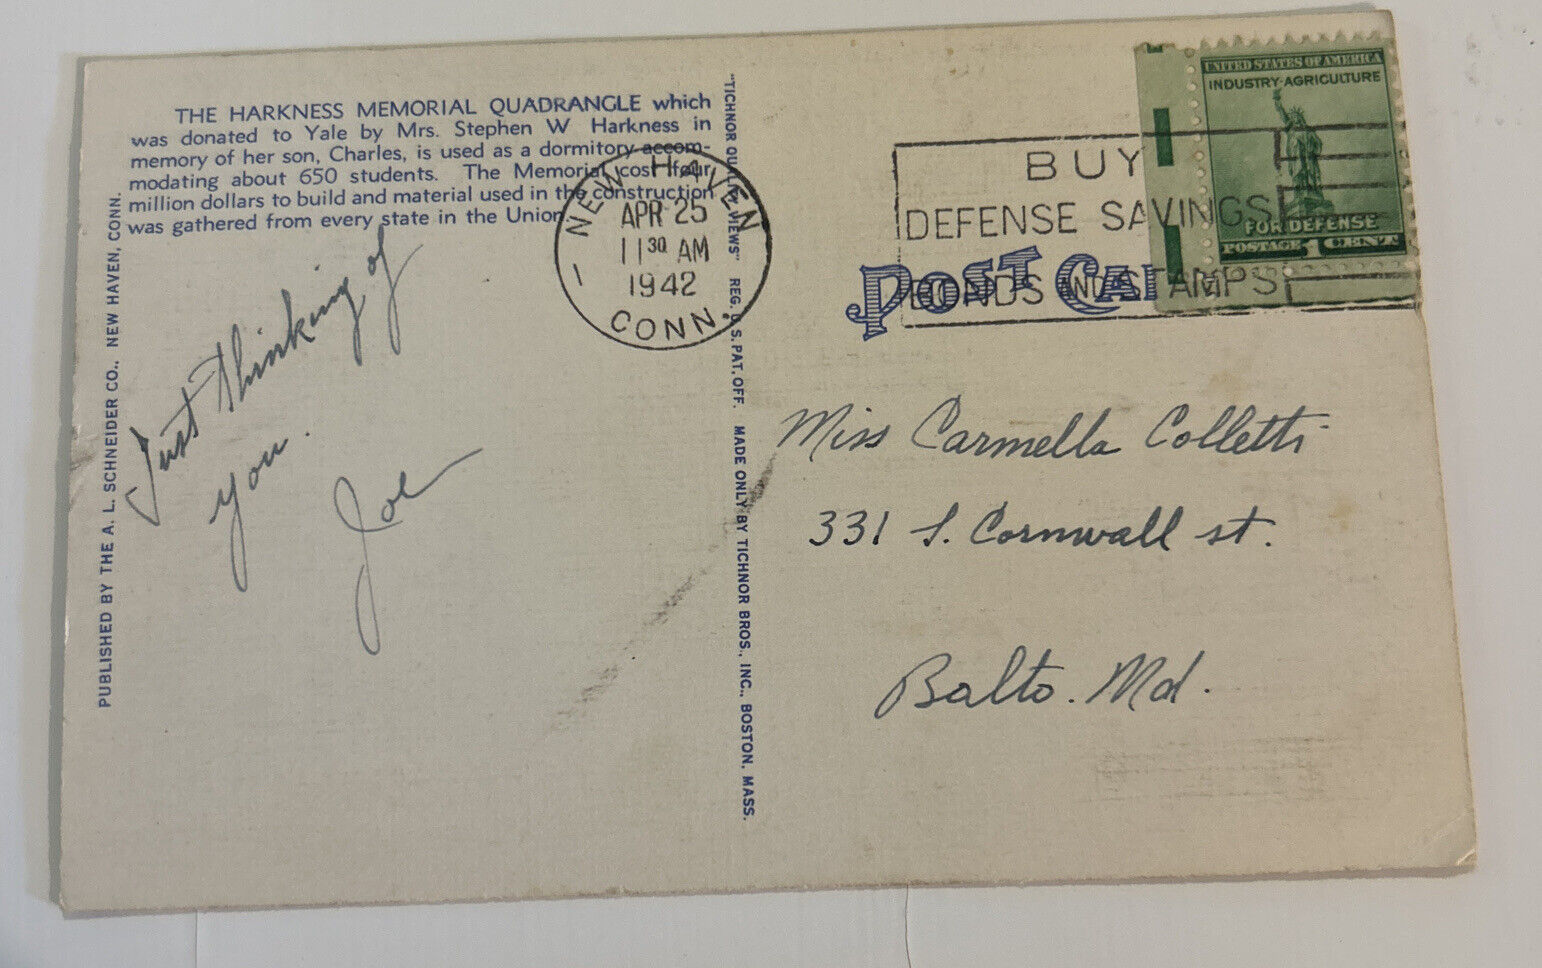 THE HARKNESS MEMORIAL QUADRANGLE which
was donated to Yale by Mrs. Stephen W Harkness in
memory of her son, Charles, is used as a dormitory accom-
modating about 650 students. The Memorial cost four
million dollars to build and material used in the construction
was gathered from every state in the Union
Just thinking of
you.
Joe
PUBLISHED BY THE A. L. SCHNEIDER CO., NEW HAVEN, CONN.
"TICHNOR QUALITY VIEWS" REG. U.S. PAT. OFF. MADE ONLY BY TICHNOR BROS., INC., BOSTON, MASS.
NEW HAVEN
APR 25
11 30 AM
1942
CONN.
BUY
DEFENSE SAVINGS
BONDS AND STAMPS
POST CAR
UNITED STATES OF AMERICA
INDUSTRY-AGRICULTURE
FOR DEFENSE
POSTAGE 1 CENT
Miss Carmella Colletti
331 S. Cornwall st.
Balto. Md.